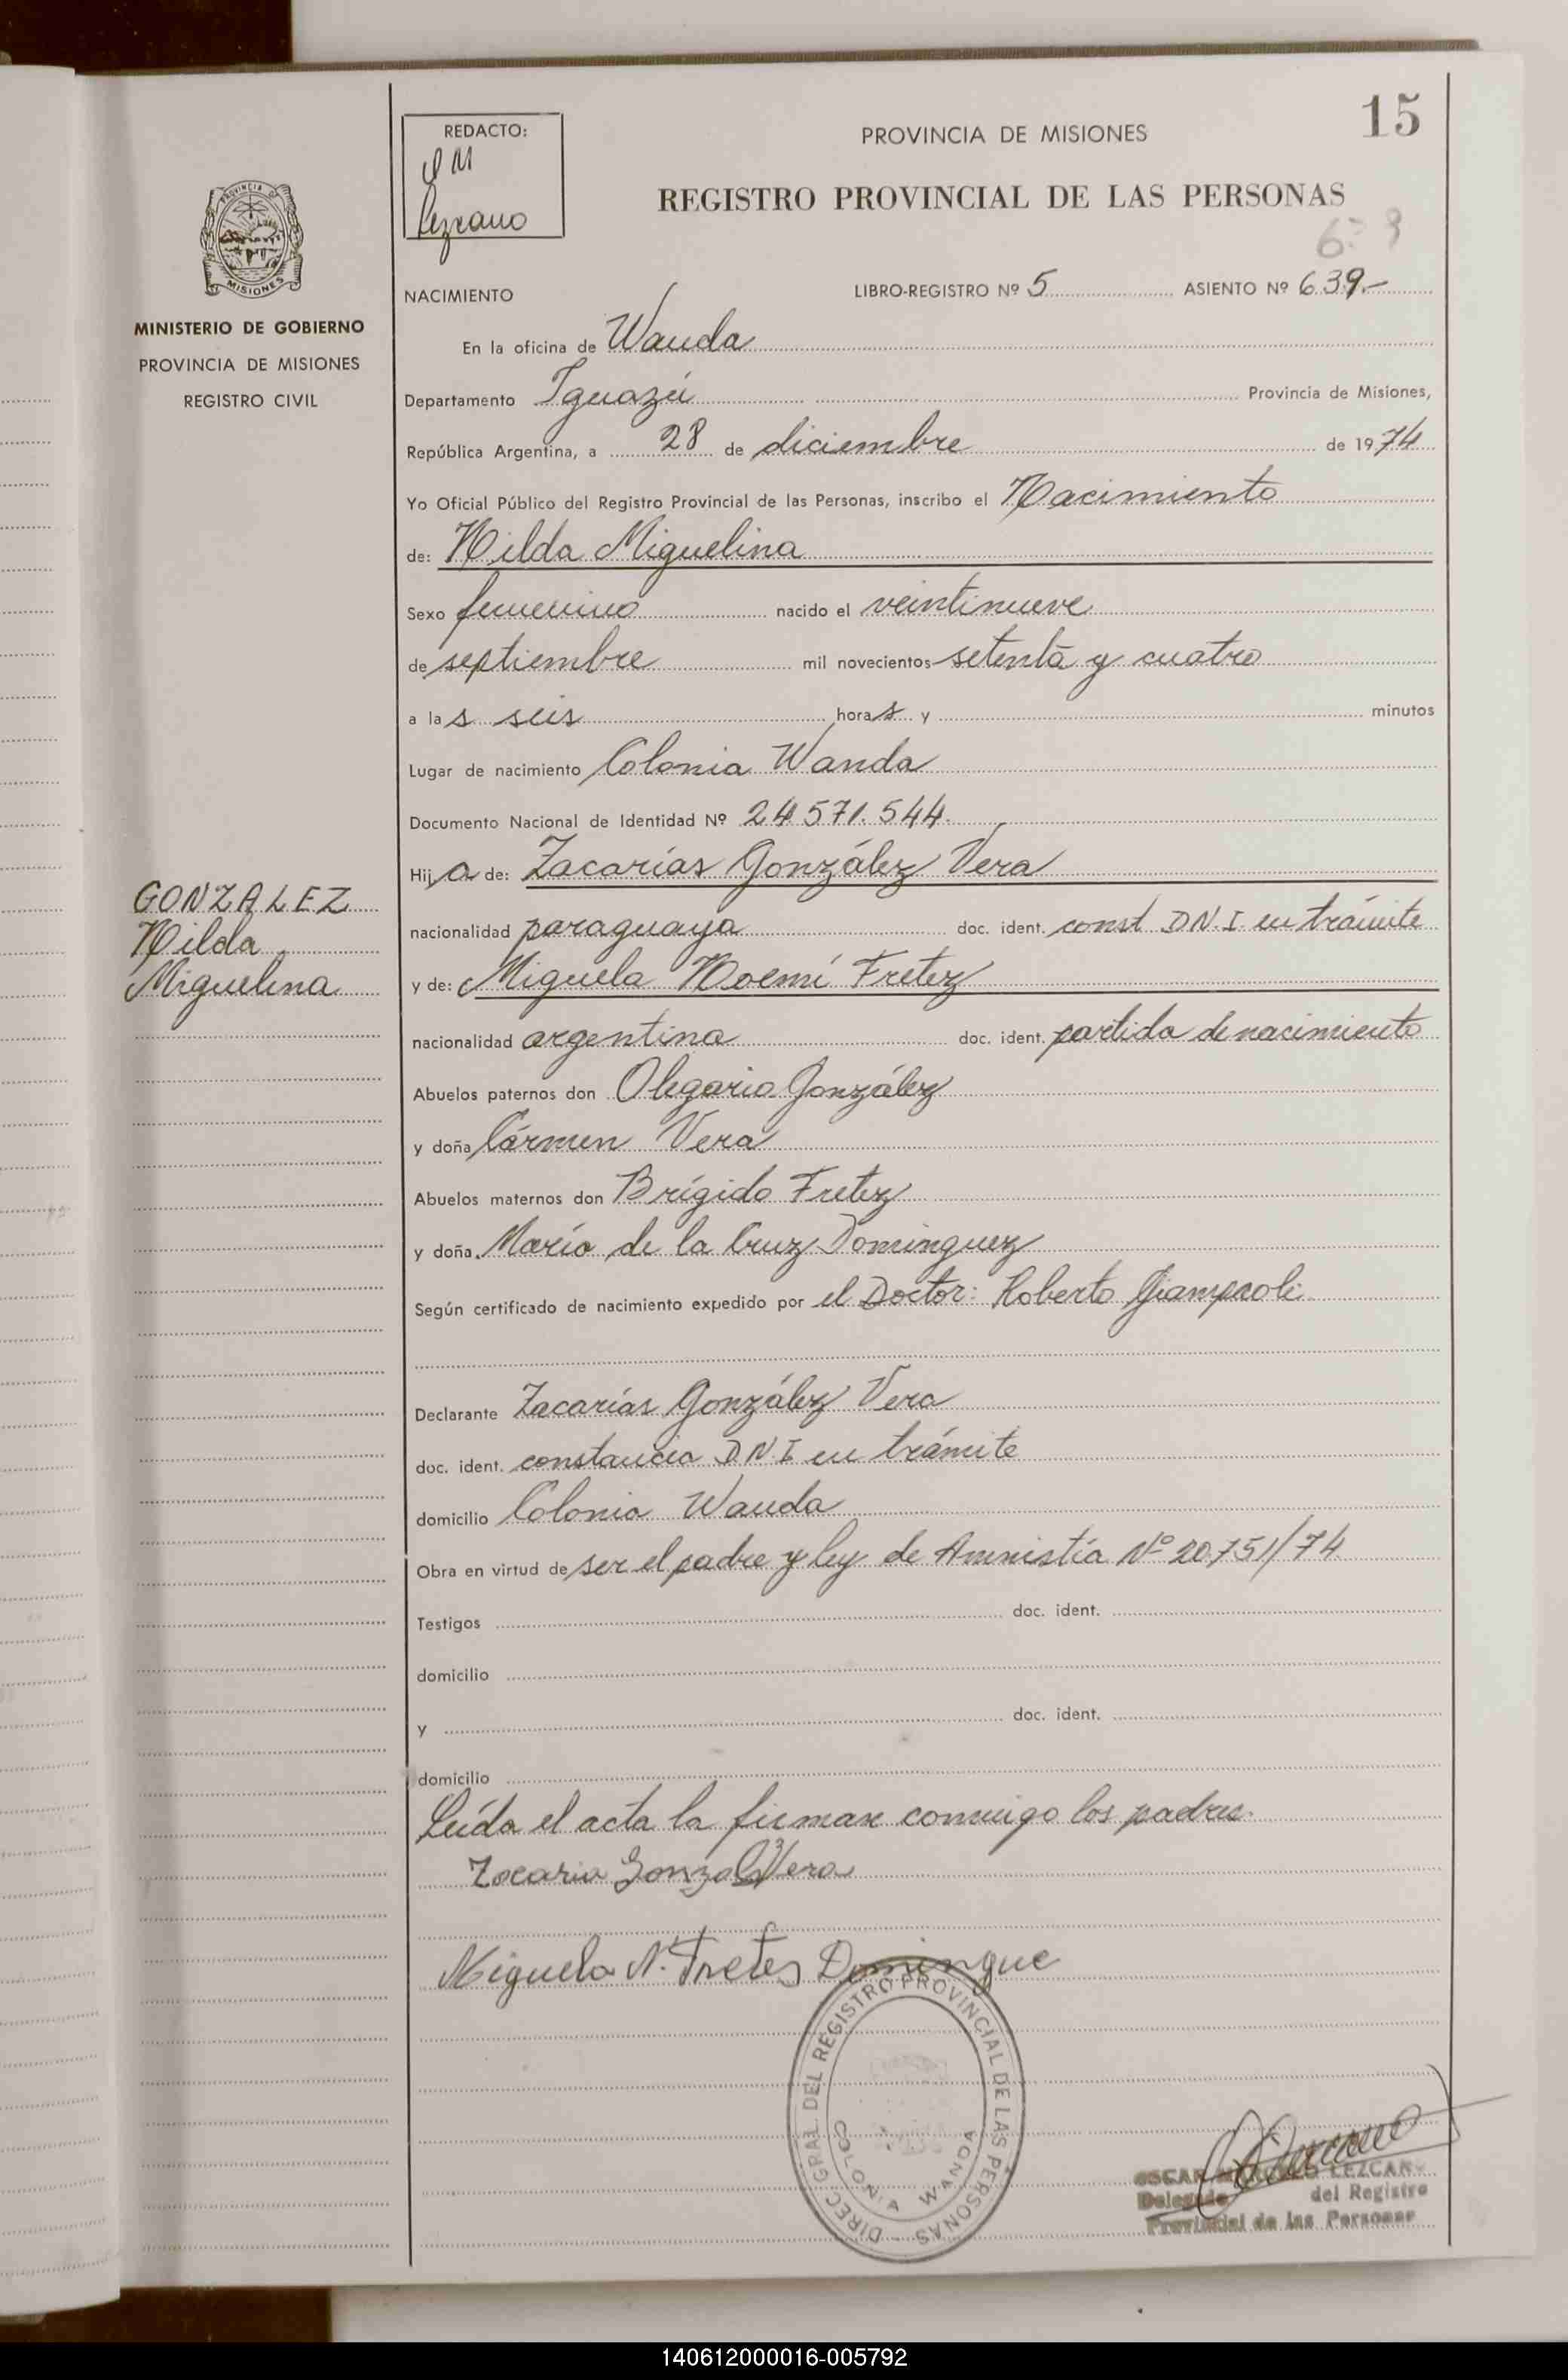 15
REDACTO:
O M
Lezcano
PROVINCIA DE MISIONES
REGISTRO PROVINCIAL DE LAS PERSONAS
PROVINCIA DE
MISIONES
MINISTERIO DE GOBIERNO
PROVINCIA DE MISIONES
REGISTRO CIVIL
NACIMIENTO LIBRO-REGISTRO Nº 5 ASIENTO Nº 639.-
En la oficina de Wanda
Departamento Iguazú Provincia de Misiones,
República Argentina, a 28 de diciembre de 1974
Yo Oficial Público del Registro Provincial de las Personas, inscribo el Nacimiento
de: Nilda Miguelina
Sexo femenino nacido el veintinueve
de septiembre mil novecientos setenta y cuatro
a las seis horas y minutos
Lugar de nacimiento Colonia Wanda
Documento Nacional de Identidad Nº 24.571.544.
Hija de: Zacarías González Vera
nacionalidad paraguaya doc. ident. const D.N.I. en trámite
y de: Miguela Noemí Fretez
nacionalidad argentina doc. ident. partida de nacimiento
Abuelos paternos don Olegario González
y doña Cármen Vera
Abuelos maternos don Brígido Fretez
y doña María de la Cruz Dominguez
Según certificado de nacimiento expedido por el Doctor: Roberto Giampaoli
Declarante Zacarías González Vera
doc. ident. constancia D.N.I en trámite
domicilio Colonia Wanda
Obra en virtud de ser el padre y ley de Amnistía Nº 20.751/74
Testigos doc. ident.
domicilio
y doc. ident.
domicilio
Leída el acta la firman conmigo los padres.
Zacaria Gonzalez Vera
Miguela N. Fretes Domingue
GONZALEZ
Nilda
Miguelina
DIREC. GRAL. DEL REGISTRO PROVINCIAL DE LAS PERSONAS
COLONIA WANDA
OSCAR LEZCANO
Delegado del Registro
Provincial de las Personas
140612000016-005792